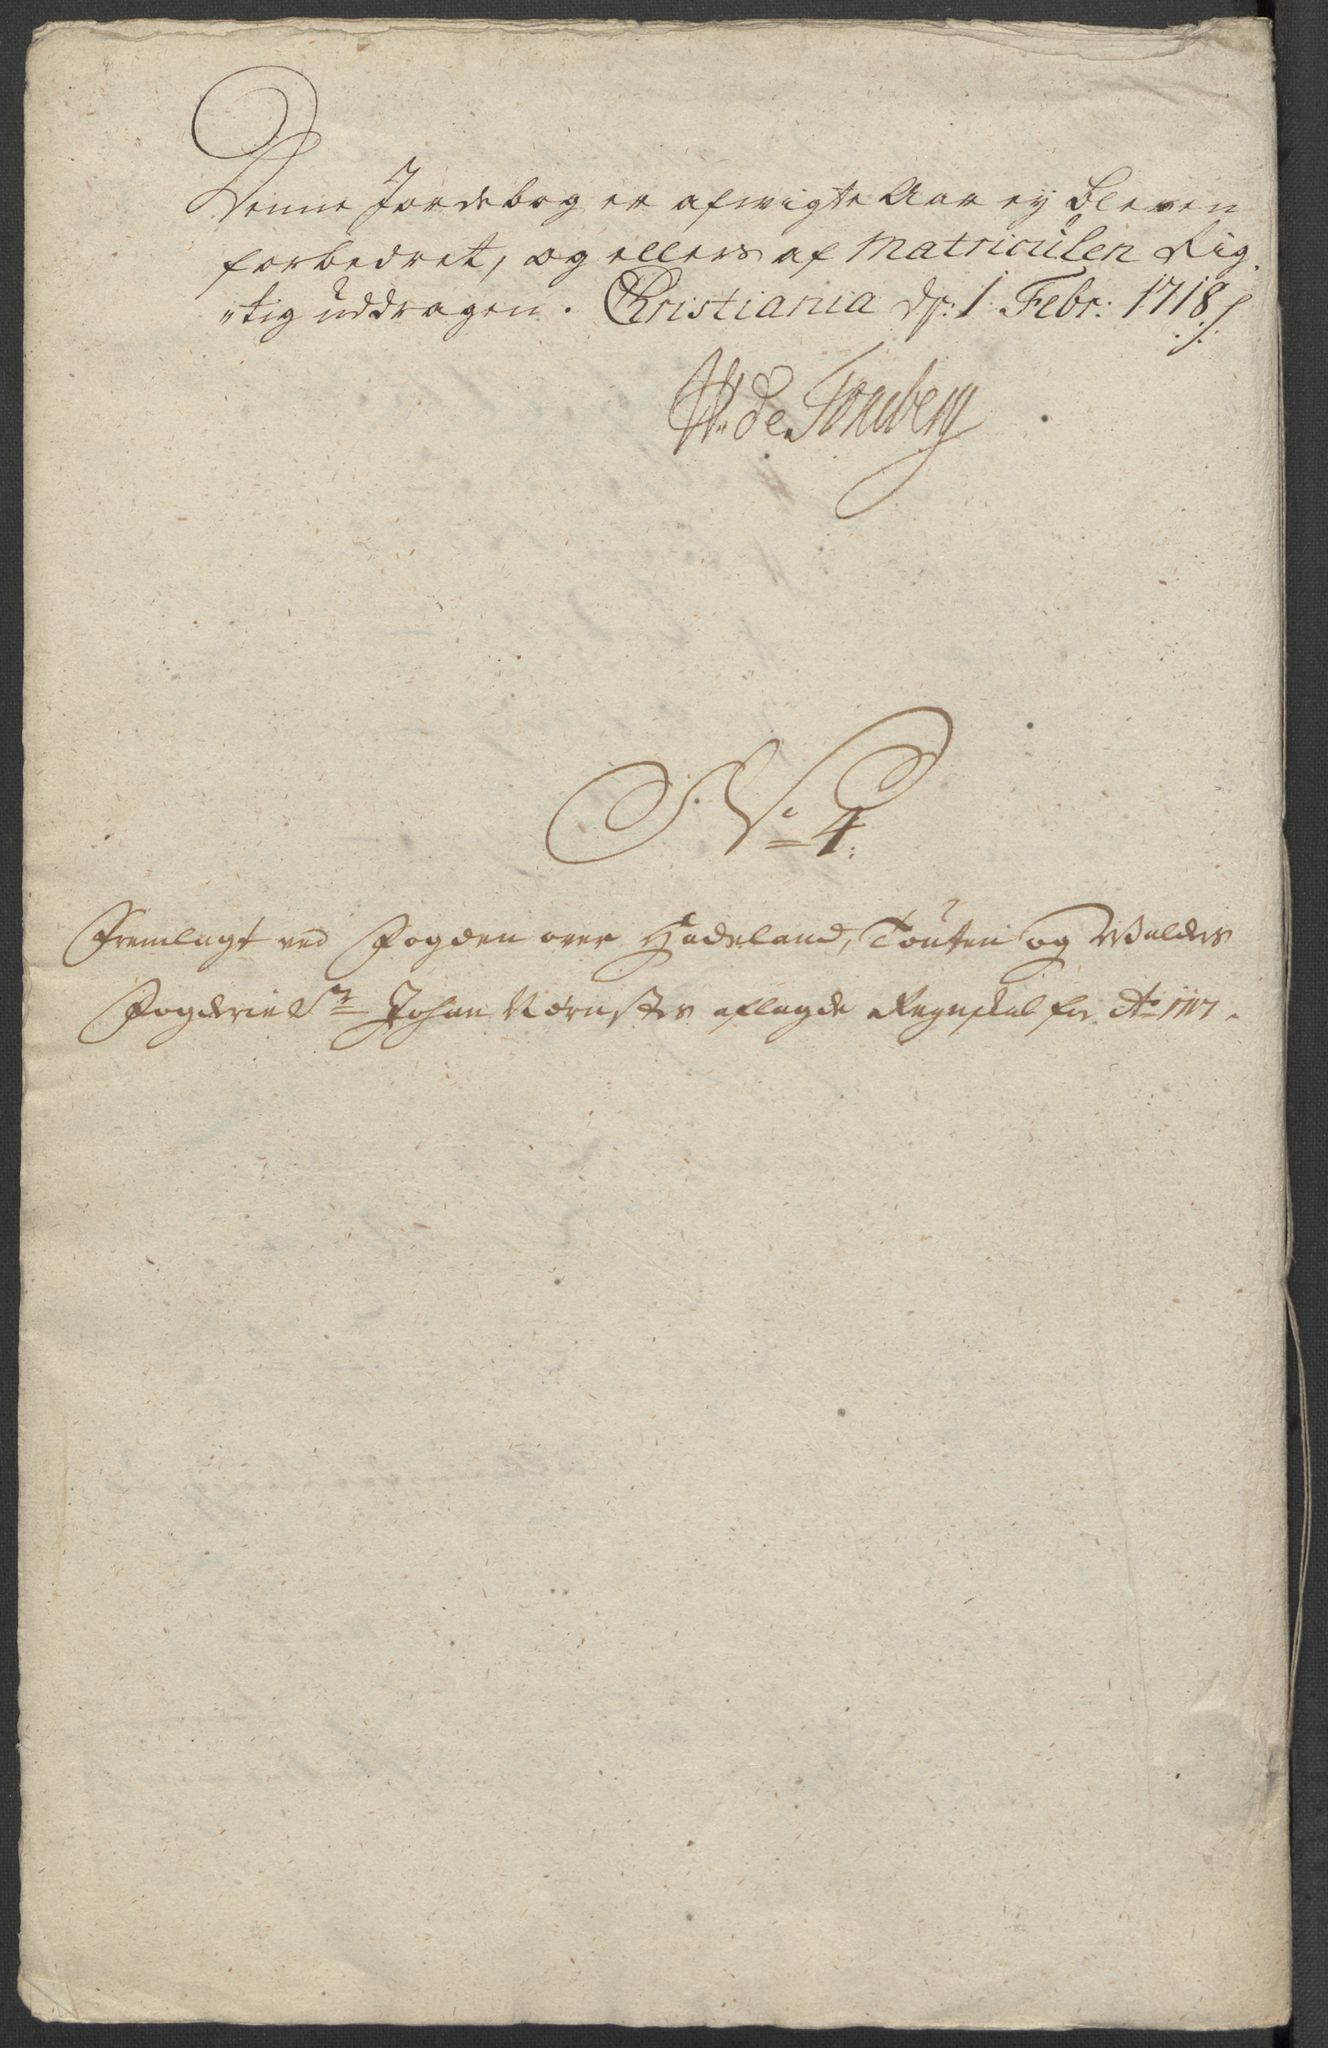 Denne Jordebog er afwigte Aar ey bleven
forbedret, og ellers af Matriculen Rig,
„tig uddragen. Christiania ds: 1 Febr: 1718/
W: de Tonsberg
No 4:
Fremlagt ved Fogden over Hadeland, Toten og Walders
Fogderie Sr Johan Nernsts aflagde Regnskab for Ao 1717.